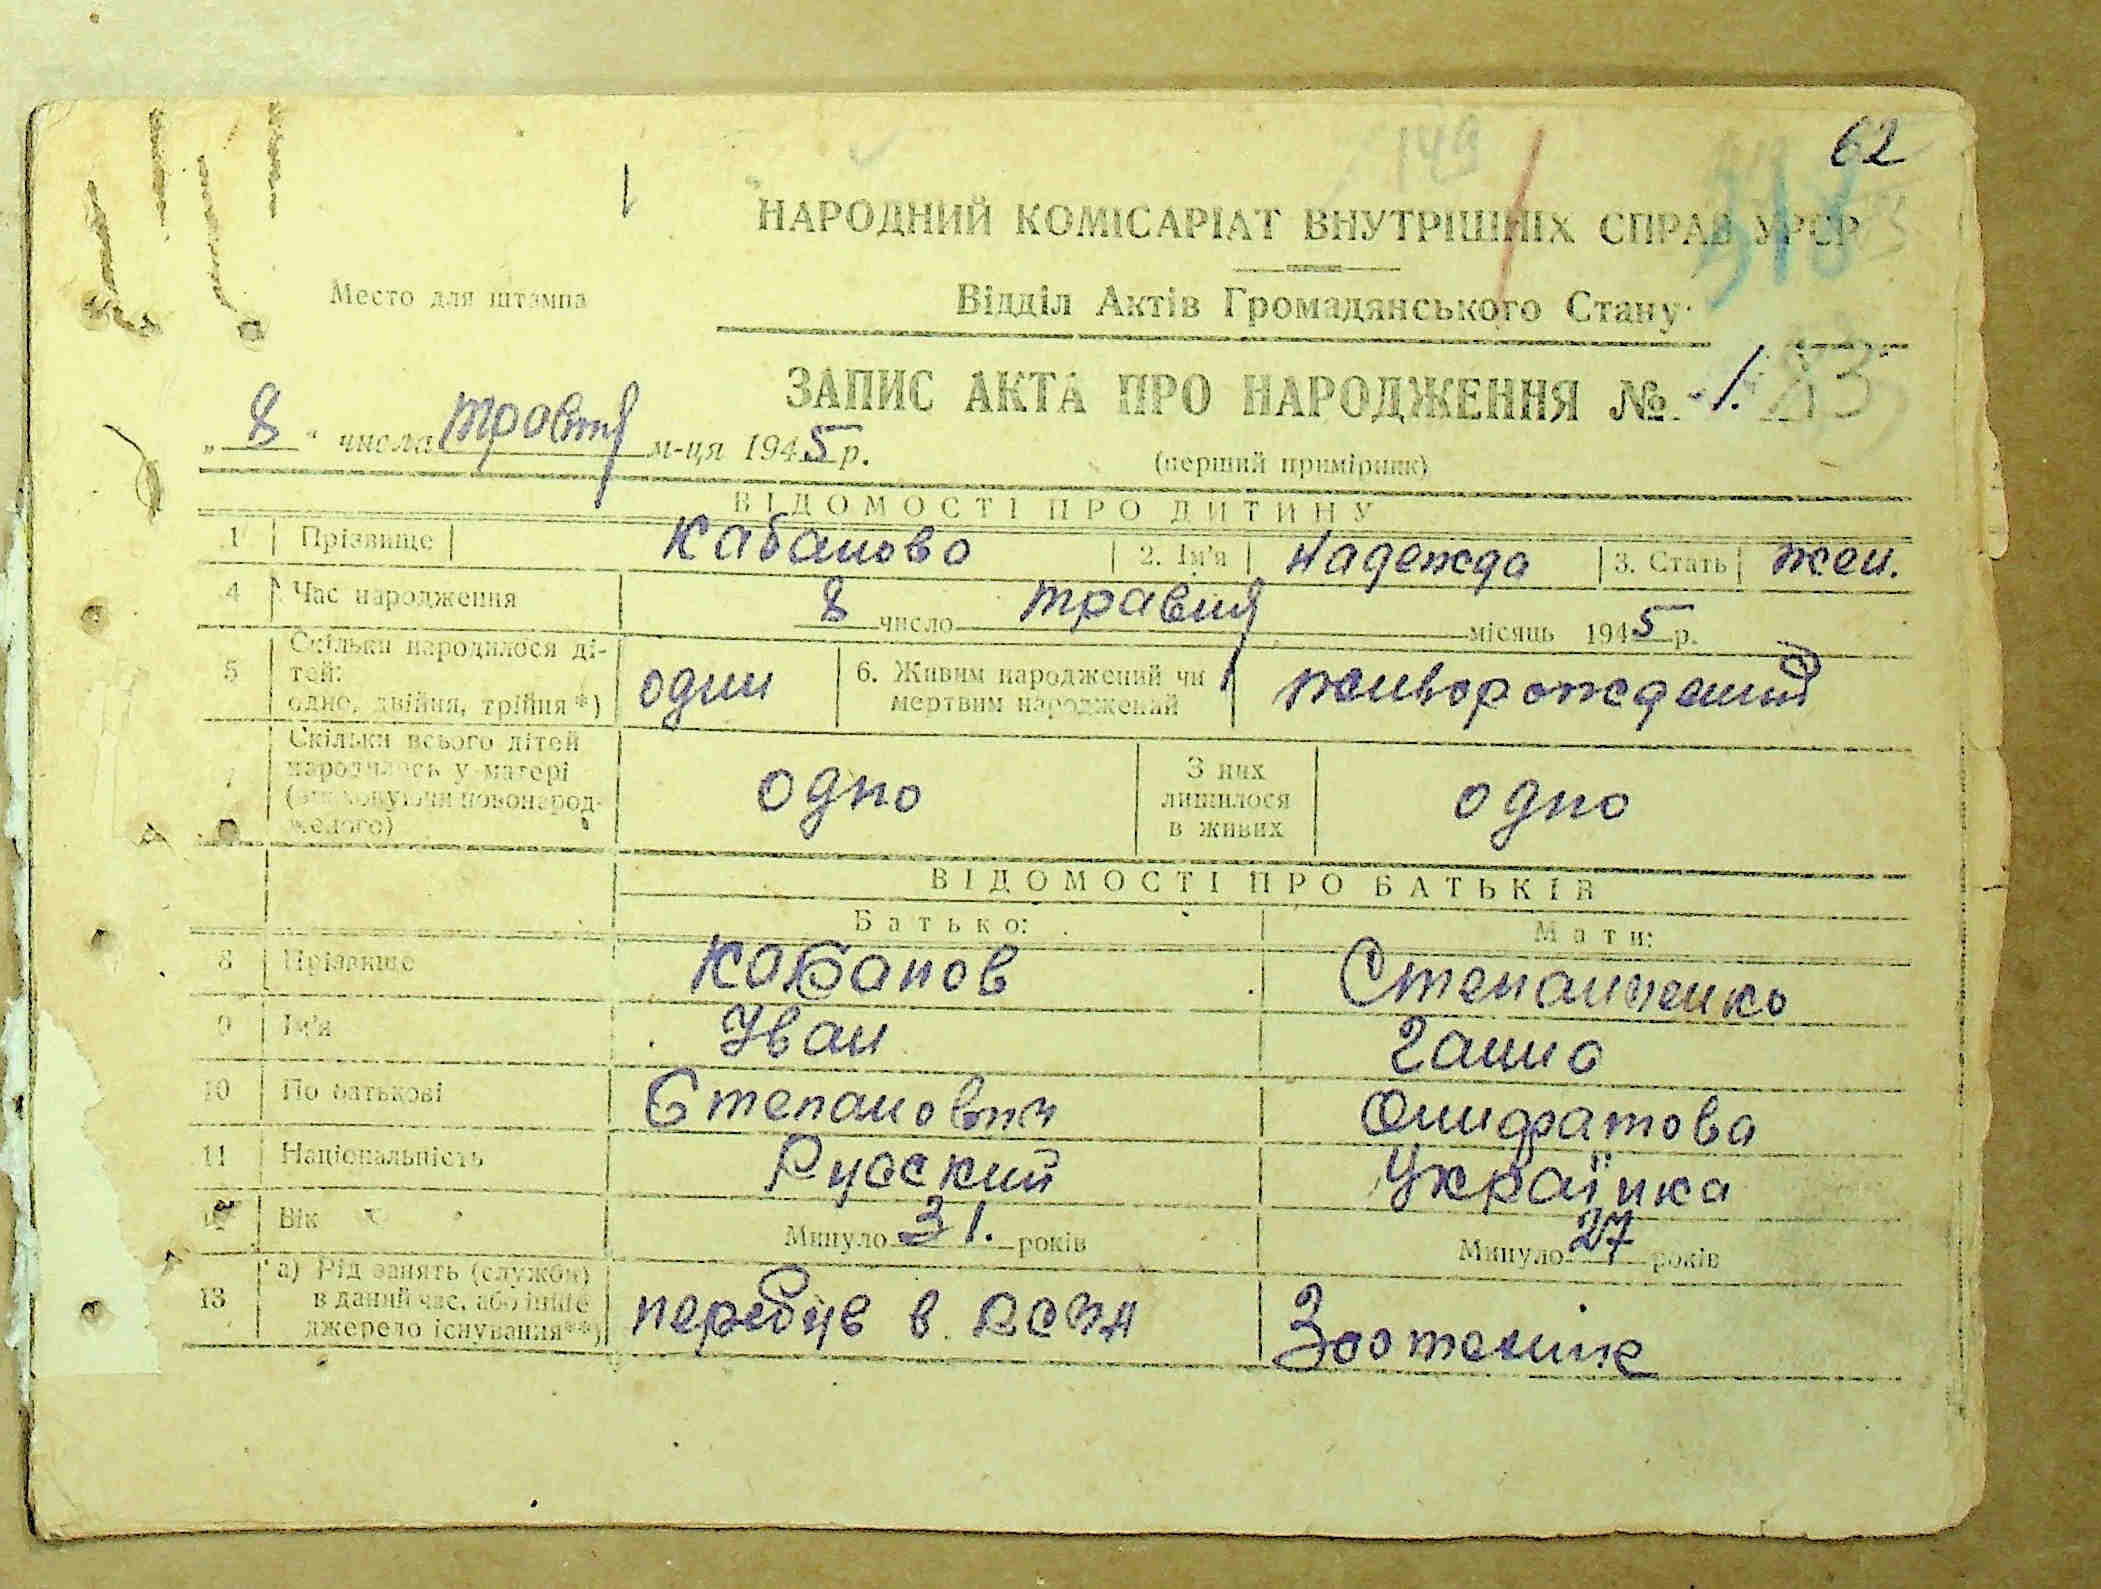 149 62
318
НАРОДНИЙ КОМІСАРІАТ ВНУТРІШНІХ СПРАВ УРСР
Место для штампа
Відділ Актів Громадянського Стану
ЗАПИС АКТА ПРО НАРОДЖЕННЯ № 1. 83
„ 8 “ числа травня м-ця 1945 р.
(перший примірник)
ВІДОМОСТІ ПРО ДИТИНУ
1 Прізвище Кабанова 2. Ім'я Надежда 3. Стать жен.
4 Час народження 8 число травня місяць 1945 р.
5 Скільки народилося ді-
тей:
одне, двійня, трійня*) один 6. Живим народжений чи
мертвим народжений живорожденный
7 Скільки всього дітей
народилось у матері
(враховуючи новонарод-
желого) одно З них
лишилося
в живих одно
ВІДОМОСТІ ПРО БАТЬКІВ
Батько: Мати:
8 Прізвище Кабанов Степанченко
9 Ім'я Иван Ганна
10 По батькові Степанович
11 Національність Русский Українка
12 Вік Минуло 31. років Минуло 27 років
13 а) Рід занять (служби)
в даний час, або інше
джерело існування**) перебув в Зоотехник